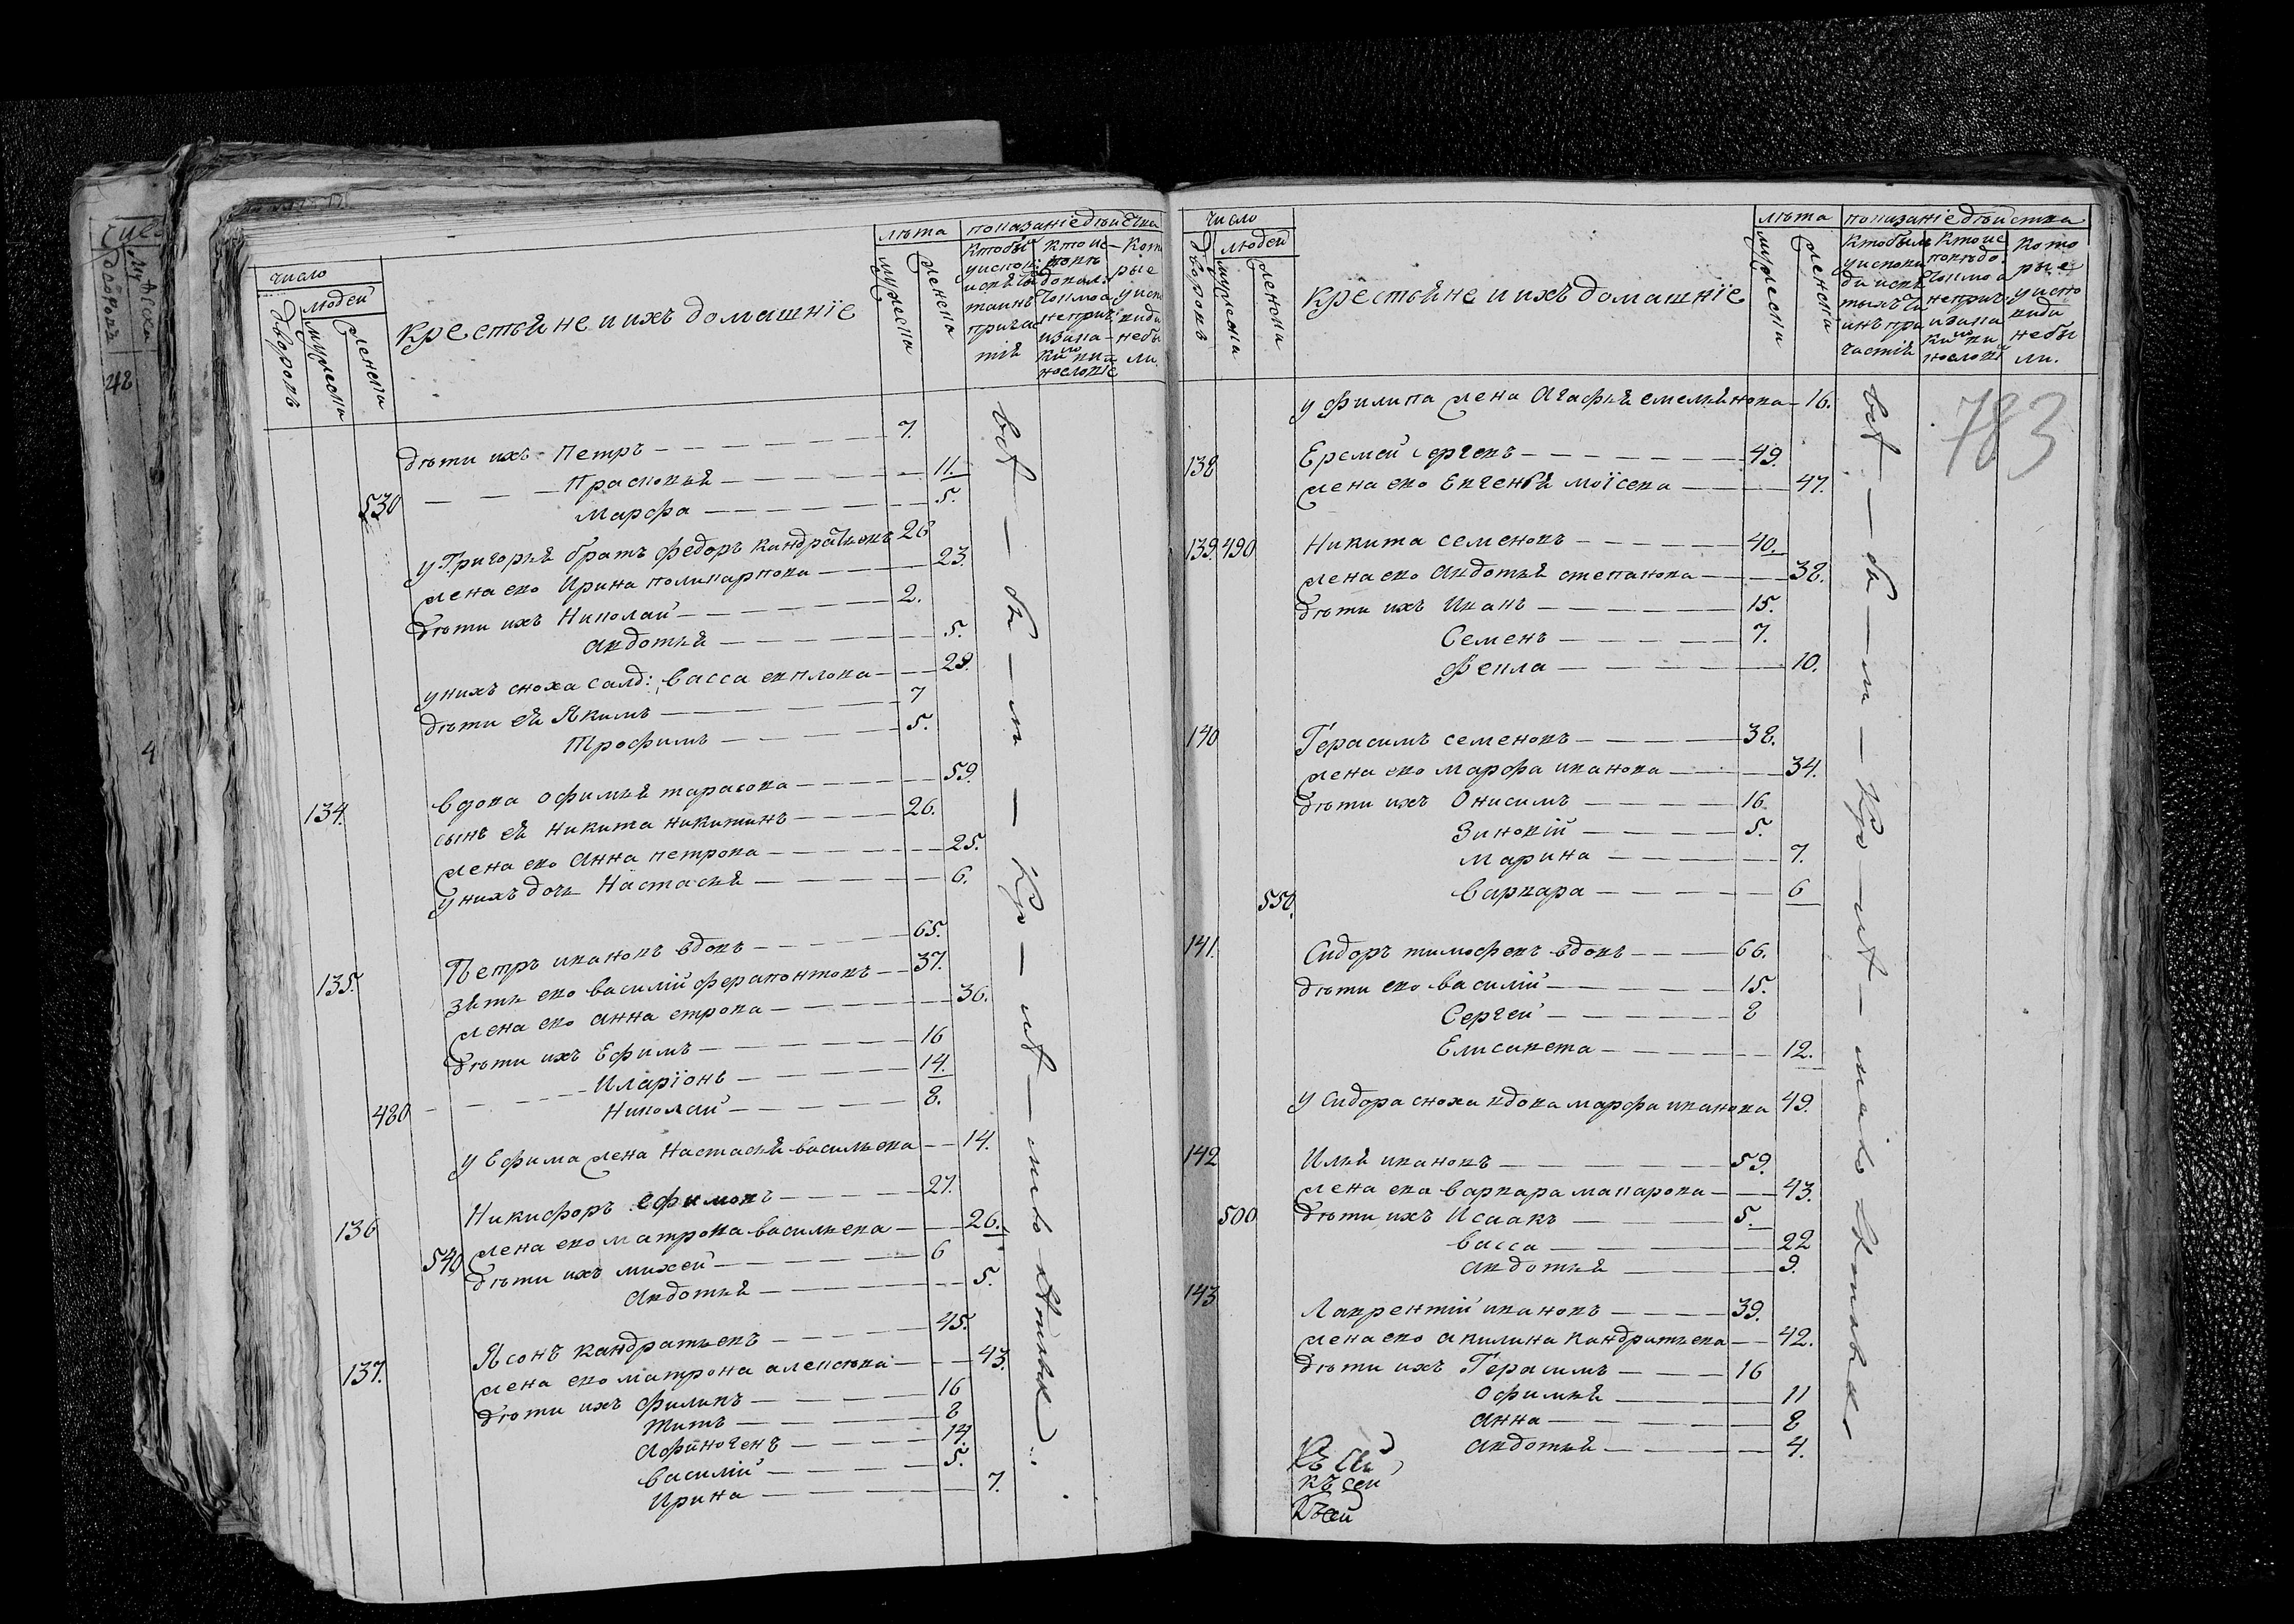 число
людей
дворовъ
мужеска
женска
крестьяне и ихъ домашніе
лѣта
мужеска
женска
показаніе дѣйства
кто былъ у исповѣди и святыхъ таинъ причастія
которые у исповѣди небыли.
дѣти ихъ Петръ 7.
Прасковья 11.
530 Марфа 5.
у Григорья братъ Федоръ Кандратьевъ 26
жена ево Ирина поликарпова 23.
дѣти ихъ Николай 2.
авдотья 5.
у нихъ сноха салд: васса 29.
дѣти ея Якимъ 7
Трофимъ 5.
134. вдова офимья тарасова 59.
сынъ ея никита никитинъ 26.
жена ево Анна петрова 25.
у нихъ дочь Настасья 6.
135. Петръ ивановъ вдовъ 65.
зять ево василій ферапонтовъ 37.
жена ево анна петрова 36.
дѣти ихъ Ефимъ 16
Иларіонъ 14.
480 Николай 8.
у Ефима жена Настасья васильева 14.
136 Никифоръ ефимовъ 27.
540 жена ево матрона васильева 26.
дѣти ихъ михей 6
авдотья 5.
137. Ясонъ кандратьевъ 45.
жена ево матрона алексѣева 43.
дѣти ихъ филипъ 16
титъ 8
Афиногенъ 14.
василій 5.
Ирина 7.
число
людей
дворовъ
мужеска
женска
крестьяне и ихъ домашніе
лѣта
мужеска
женска
показаніе дѣйства
которые у исповѣди небыли.
783
у филипа жена Агафья емельянова 16.
138 Еремей сергеевъ 49.
жена ево Евгенья моісеева 47.
139. 490 Никита семеновъ 40.
жена ево авдотья степанова 38.
дѣти ихъ Иванъ 15.
Семенъ 7.
Фекла 10.
140 Герасимъ семеновъ 38.
жена ево марфа иванова 34.
дѣти ихъ Онисимъ 16.
Зиновій 5.
марина 7.
550. варвара 6
141. Сидоръ тимофеевъ вдовъ 66.
дѣти ево василій 15.
Сергей 8
Елисавета 12.
у сидора сноха вдова марфа иванова 49.
142 Илья ивановъ 59.
жена ево варвара макарова 43.
500 дѣти ихъ Исаакъ 5.
васса 22
авдотья 9.
143 Лаврентій ивановъ 39.
жена ево акилина кандратьева 42.
дѣти ихъ Герасимъ 16
офимья 11
анна 8
авдотья 4.
къ сей
къ сей